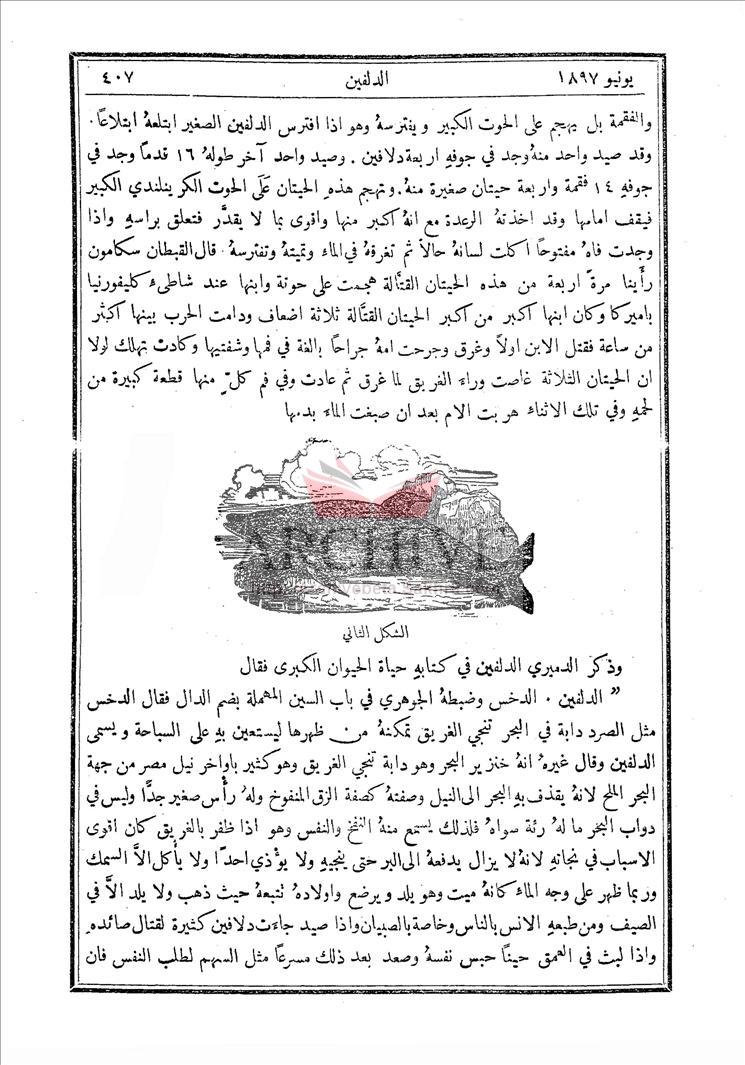 يونيو ١٨٩٧
الدلفين
٤٠٧
والفقمة بل يهجم على الحوت الكبير ويفترسهُ وهو اذا افترس الدلفين الصغير ابتلعهُ ابتلاعًا.
وقد صيد واحد منهُ وجد في جوفهِ اربعة دلافين. وصيد واحد آخر طولهُ ١٦ قدمًا وجد في
جوفهِ ١٤ فقمة واربعة حيتان صغيرة منهُ. وتهجم هذهِ الحيتان عَلَى الحوت الكرينلندي الكبير
فيقف امامها وقد اخذتهُ الرعدة مع انهُ اكبر منها واقوى بما لا يقدَّر فتعلق براسهِ واذا
وجدت فاهُ مفتوحًا اكلت لسانهُ حالاً ثم تغرقهُ في الماء وتميتهُ وتفترسهُ. قال القبطان سكامون
رأينا مرةً اربعة من هذه الحيتان القتَّالة هجمت على حوتة وابنها عند شاطىء كليفورنيا
باميركا وكان ابنها اكبر من اكبر الحيتان القتَّالة ثلاثة اضعاف ودامت الحرب بينها اكثر
من ساعة فقتل الابن اولاً وغرق وجرحت امهُ جراحًا بالغة في فمها وشفتيها وكادت تهلك لولا
ان الحيتان الثلاثة غاصت وراء الغريق لما غرق ثم عادت وفي فم كلٍّ منها قطعة كبيرة من
لحمهِ وفي تلك الاثناء هربت الام بعد ان صبغت الماء بدمها
ARCHIVE
الشكل الثاني
وذكر الدميري الدلفين في كتابهِ حياة الحيوان الكبرى فقال
” الدلفين. الدخس وضبطهُ الجوهري في باب السين المهملة بضم الدال فقال الدخس
مثل الصرد دابة في البحر تنجي الغريق تمكنهُ من ظهرها ليستعين بهِ على السباحة ويسمى
الدلفين وقال غيرهُ انهُ خنزير البحر وهو دابة تنجي الغريق وهو كثير باواخر نيل مصر من جهة
البحر الملح لانهُ يقذف بهِ البحر الى النيل وصفتهُ كصفة الزق المنفوخ ولهُ رأس صغير جدًّا وليس في
دواب البحر ما لهُ رئة سواهُ فلذلك يستمع منهُ النفخ والنفس وهو اذا ظفر بالغريق كان اقوى
الاسباب في نجاتهِ لانهُ لا يزال يدفعهُ الى البر حتى ينجيهِ ولا يؤذي احدًا ولا يأكل الاَّ السمك
وربما ظهر على وجه الماء كانهُ ميت وهو يلد ويرضع واولادهُ تتبعهُ حيث ذهب ولا يلد الاَّ في
الصيف ومن طبعهِ الانس بالناس وخاصة بالصبيان واذا صيد جاءت دلافين كثيرة لقتال صائدهِ
واذا لبث في العمق حينًا حبس نفسهُ وصعد بعد ذلك مسرعًا مثل السهم لطلب النفس فان